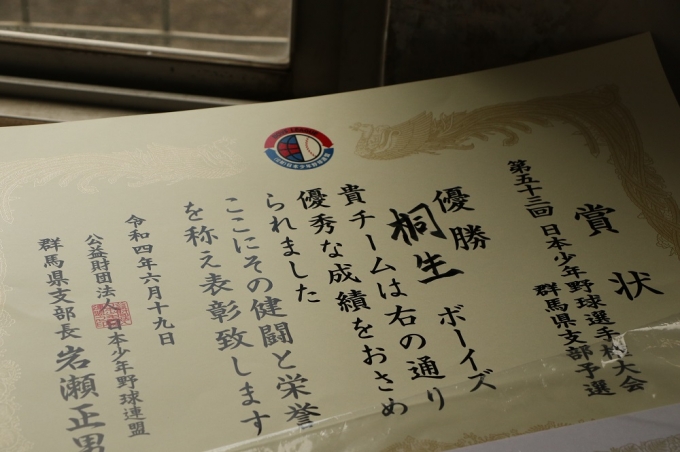 賞状
第五十三回 日本少年野球選手権大会
群馬県支部予選
優勝
桐生 ボーイズ
貴チームは右の通り
優秀な成績をおさめ
られました
ここにその健闘と栄誉
を称え表彰致します
令和四年六月十九日
公益財団法人日本少年野球連盟
群馬県支部長 岩瀬正男